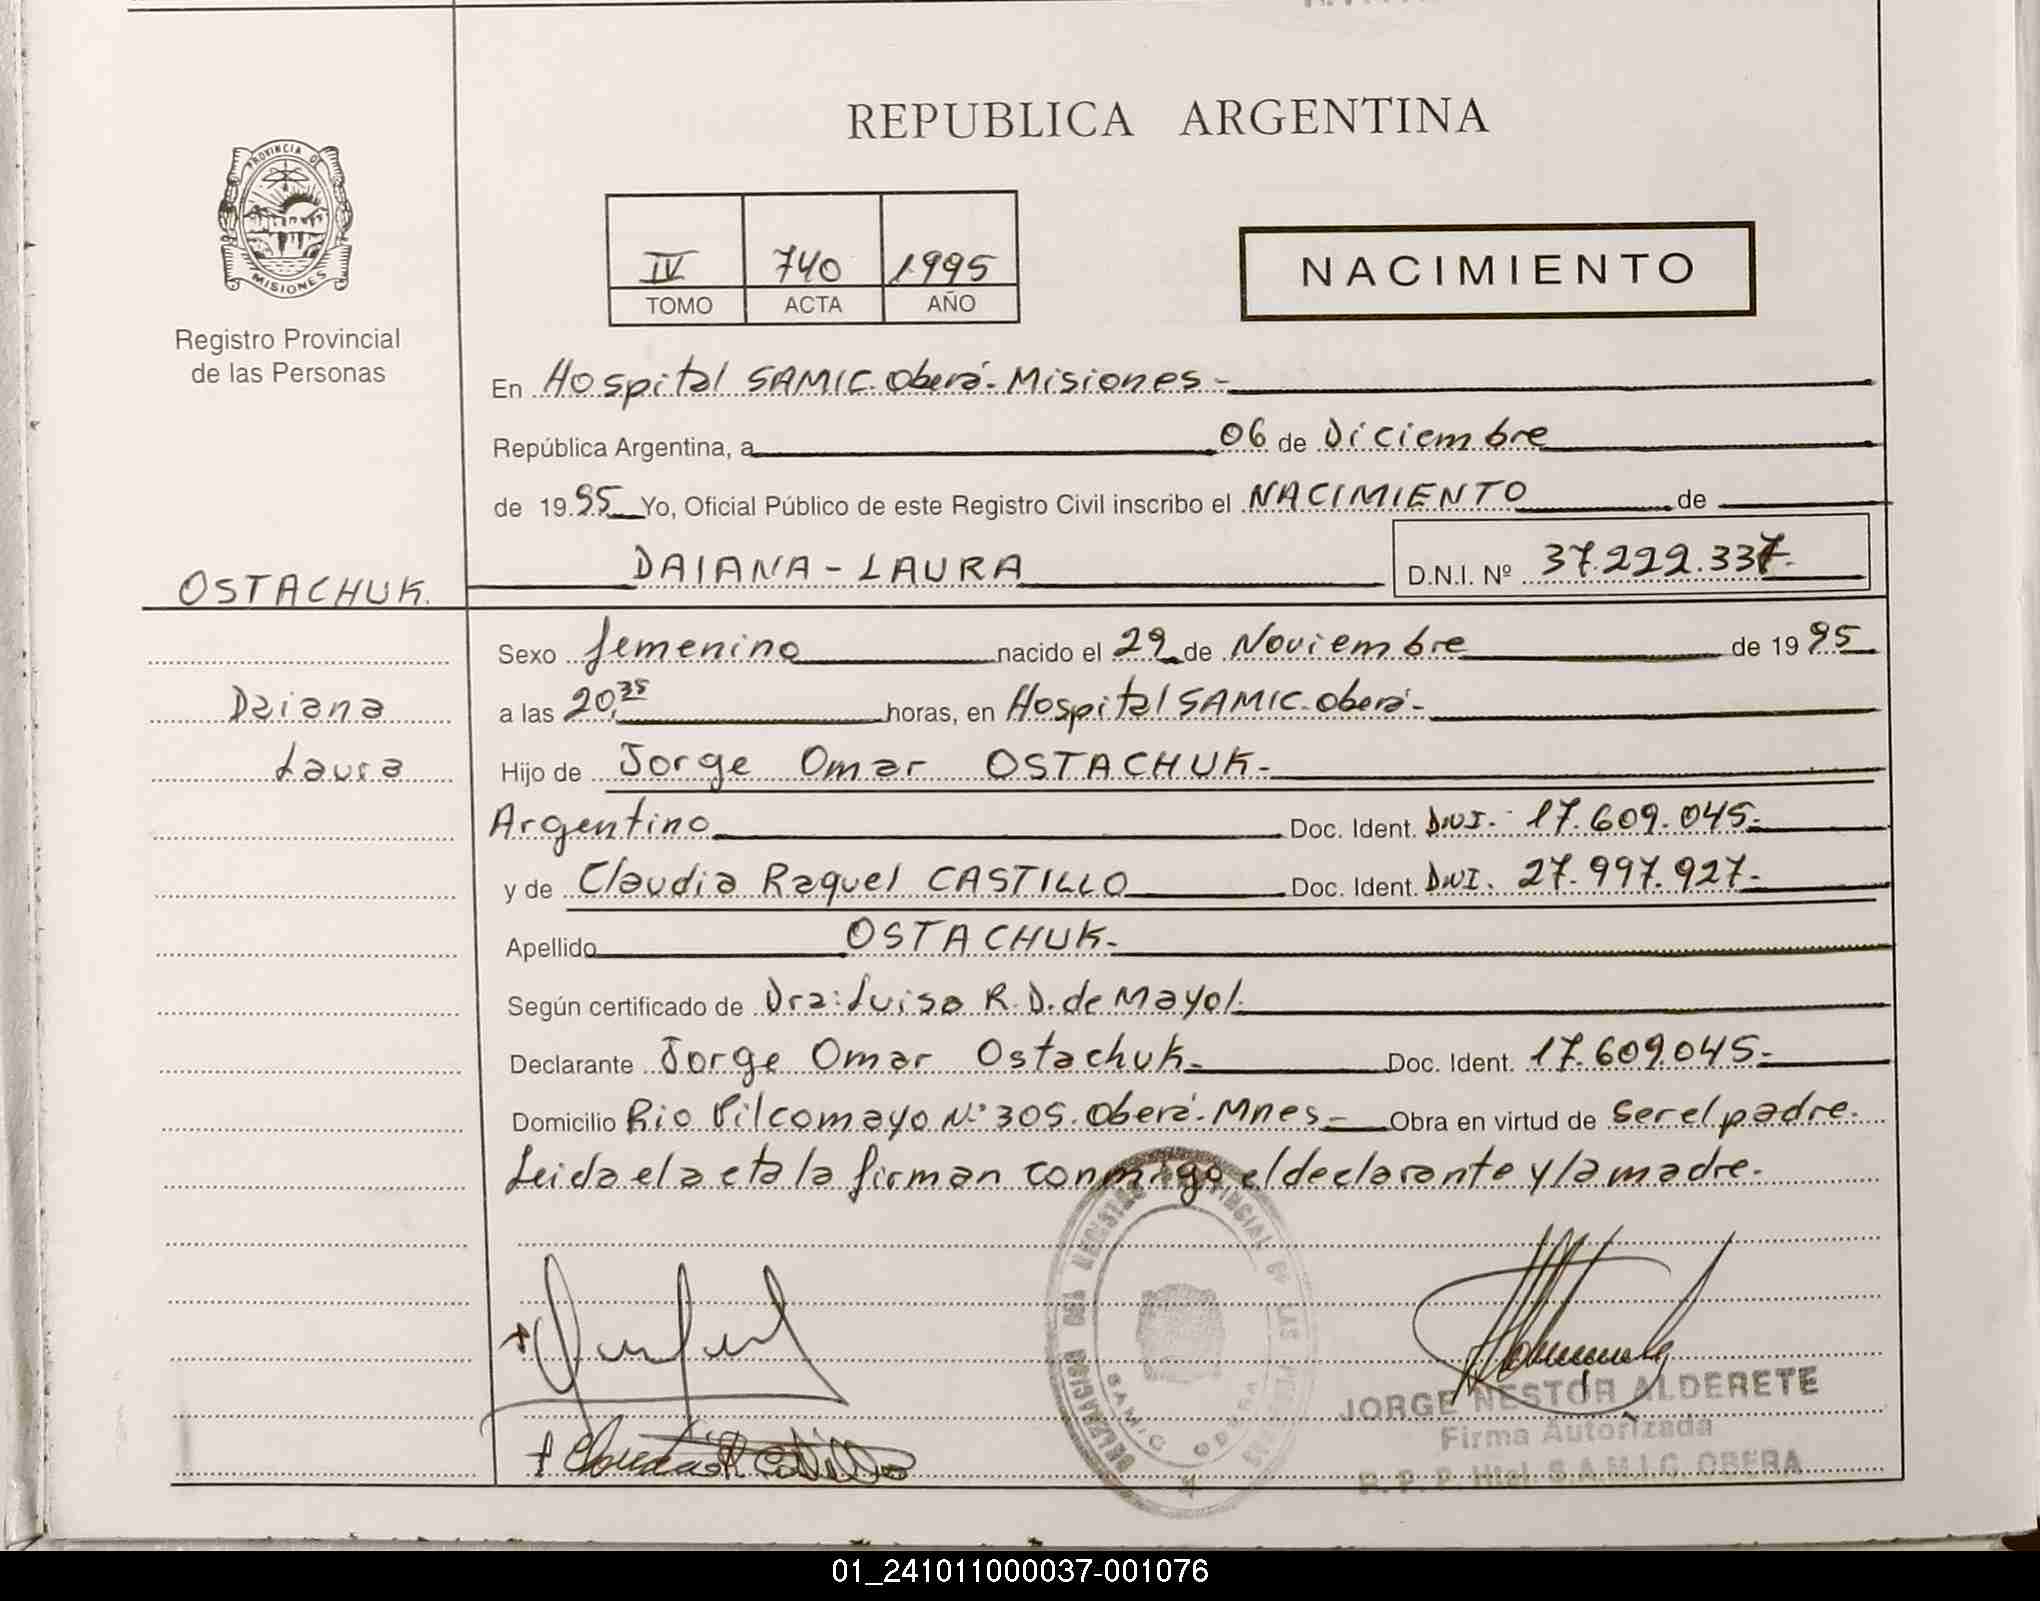 REPUBLICA ARGENTINA
PROVINCIA DE
MISIONES
Registro Provincial
de las Personas
IV 740 1995
TOMO ACTA AÑO
NACIMIENTO
En Hospital SAMIC. Oberá- Misiones-
República Argentina, a 06 de Diciembre
de 1995 Yo, Oficial Público de este Registro Civil inscribo el NACIMIENTO de
OSTACHUK.
DAIANA-LAURA D.N.I. Nº 37.222.337-
Sexo femenino nacido el 29 de Noviembre de 1995
Daiana
a las 20,35 horas, en Hospital SAMIC. Oberá-
Laura
Hijo de Jorge Omar OSTACHUK-
Argentino Doc. Ident. DNI.- 17.609.045-
y de Claudia Raquel CASTILLO Doc. Ident. DNI. 27.997.927-
Apellido OSTACHUK-
Según certificado de Dra: Luisa R.D. de Mayol.
Declarante Jorge Omar Ostachuk- Doc. Ident. 17.609.045-
Domicilio Rio Pilcomayo Nº 305. Oberá- Mnes- Obra en virtud de ser el padre.
Leida el acta la firman conmigo el declarante y la madre.
DELEGACION DEL REGISTRO PROVINCIAL DE LAS PERSONAS
SAMIC OBERA
JORGE NESTOR ALDERETE
Firma Autorizada
R. P. P. Htal. S.A.M.I.C. OBERA
01_241011000037-001076